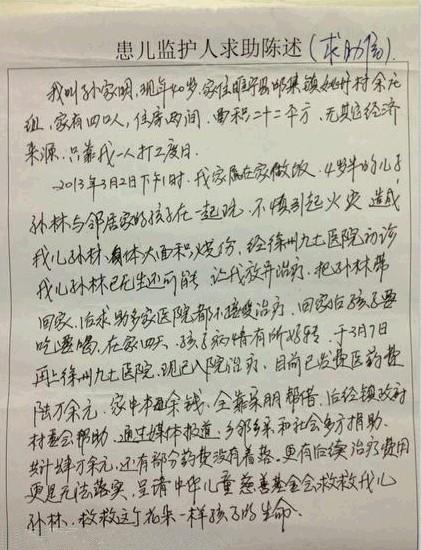 患儿监护人求助陈述(求助信).
我叫孙家明,现年40岁.家住睢宁县邱集镇 村余庄
组,家有四口人,住房两间.面积二十二平方,无其它经济
来源.只靠我一人打工度日.
2013年3月2日下午1时.我家属在家做饭.4岁半的儿子
孙林与邻居家的孩子在一起玩.不慎引起火灾 造成
我儿孙林身体大面积烧伤,经徐州九七医院初诊
我儿孙林已无生还可能 让我放弃治疗.把孙林带
回家.后求助多家医院都不接受治疗.回家后孩子要
吃要喝.在家四天.孩子病情有所好转.于3月7日
再上徐州九七医院.现已入院治疗.目前已发费医药费
陆万余元.家中本无余钱.全靠亲朋帮借.后经镇政府
村委会帮助.通过媒体报道.乡邻乡亲和社会多方捐助.
共计 万余元.还有部分药费没有着落.更有后续治疗费用
更是无法落实.呈请中华儿童慈善基金会救救我儿
孙林.救救这个花朵一样孩子的生命.